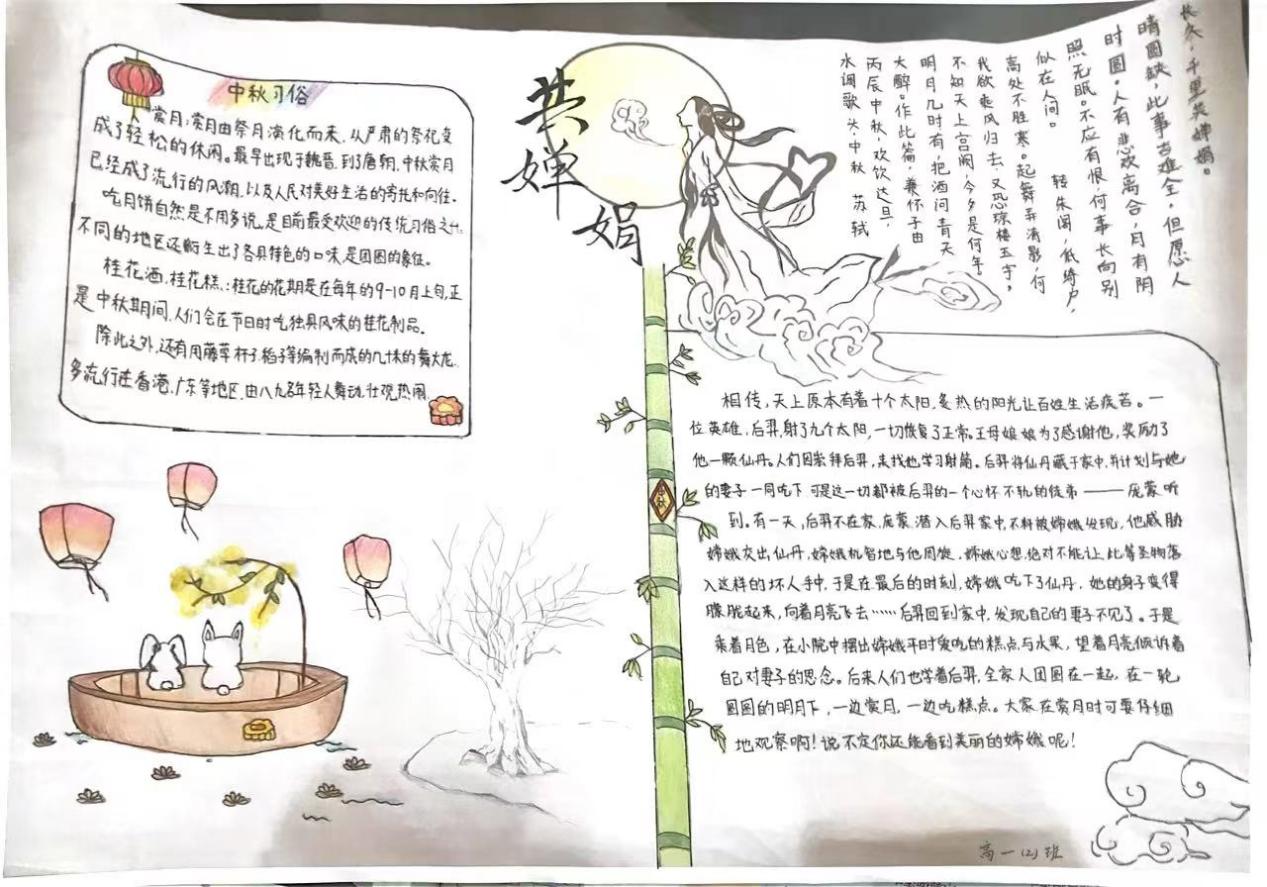 共
婵
娟
中秋习俗
赏月:赏月由祭月演化而来,从严肃的祭祀变
成了轻松的休闲。最早出现于魏晋,到了唐朝,中秋赏月
已经成了流行的风潮,以及人民对美好生活的寄托和向往。
吃月饼自然是不用多说,是目前最受欢迎的传统习俗之一,
不同的地区还衍生出了各具特色的口味,是团圆的象征。
桂花酒,桂花糕,:桂花的花期是在每年的9-10月上旬,正
是中秋期间,人们会在节日时吃独具风味的桂花制品。
除此之外,还有用藤草杆子,稻子等编制而成的几十米的舞火龙,
多流行在香港,广东等地区,由八九名年轻人舞动,壮观热闹。
水调歌头·中秋 苏轼
丙辰中秋,欢饮达旦,
大醉。作此篇,兼怀子由
明月几时有,把酒问青天
不知天上宫阙,今夕是何年。
我欲乘风归去,又恐琼楼玉宇,
高处不胜寒。起舞弄清影,何
似在人间。 转朱阁,低绮户,
照无眠。不应有恨,何事长向别
时圆。人有悲欢离合,月有阴
晴圆缺,此事古难全,但愿人
长久,千里共婵娟。
相传,天上原本有着十个太阳,炙热的阳光让百姓生活疾苦。一
位英雄,后羿,射了九个太阳,一切恢复了正常。王母娘娘为了感谢他,奖励了
他一颗仙丹。人们因崇拜后羿,来找他学习射箭。后羿将仙丹藏于家中,并计划与她
的妻子一同吃下 可是这一切都被后羿的一个心怀不轨的徒弟——庞蒙听
到。有一天,后羿不在家,庞蒙潜入后羿家中,不料被嫦娥发现,他威胁
嫦娥交出仙丹,嫦娥机智地与他周旋,嫦娥心想,绝对不能让此等圣物落
入这样的坏人手中,于是在最后的时刻,嫦娥吃下了仙丹,她的身子变得
朦胧起来,向着月亮飞去……后羿回到家中,发现自己的妻子不见了。于是
乘着月色,在小院中摆出嫦娥平时爱吃的糕点与水果,望着月亮倾诉着
自己对妻子的思念。后来人们也学着后羿,全家人团圆在一起,在一轮
圆圆的明月下,一边赏月,一边吃糕点。大家在赏月时可要仔细
地观察啊!说不定你还能看到美丽的嫦娥呢!
高一(2)班